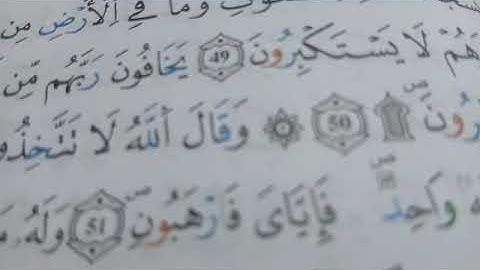 وَمَا فِي الْأَرْضِ مِن
وَهُمْ لَا يَسْتَكْبِرُونَ 49 يَخَافُونَ رَبَّهُم مِّن
50 ۞ وَقَالَ اللَّهُ لَا تَتَّخِذُوا
وَاحِدٌ فَإِيَّايَ فَارْهَبُونِ 51 وَلَهُ